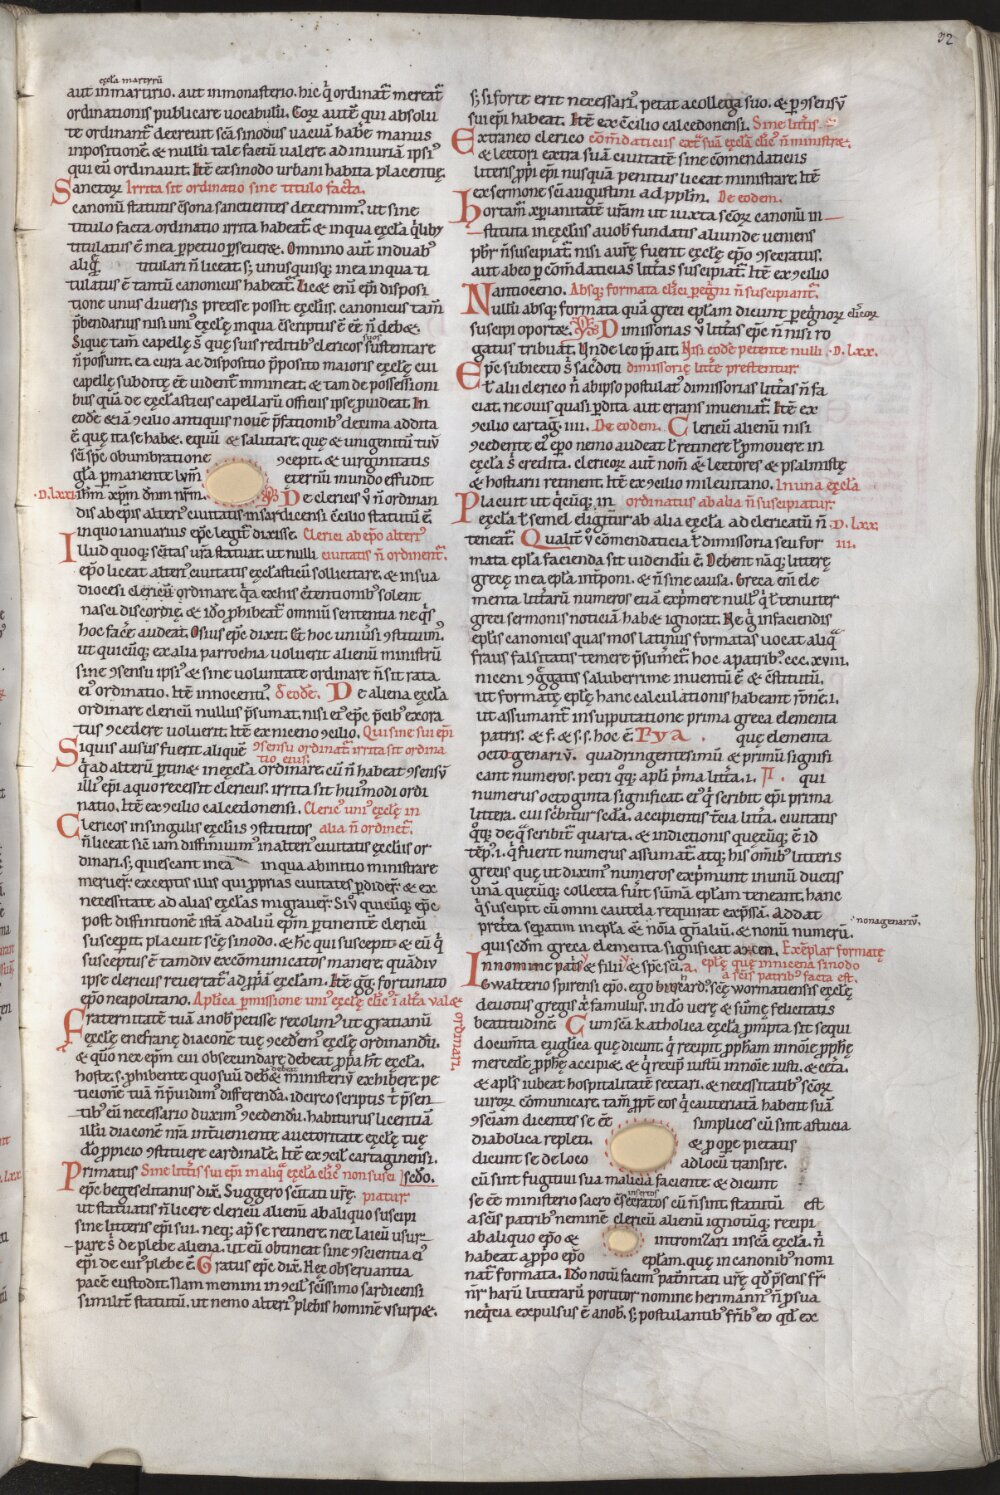 32
eccła martyrū
aut in martirio. aut in monasterio. hic q̇ ordinat̄ mereat̄
ordinationis publicare uocabulū. Eorꝝ autē qui absolu
te ordinant̄ decreuit sc̄a sinodus uacuā habe manus
inpositionē. & nullū tale factū ualere. ad iniuriā ipsiꝰ
qui eū ordinauit. Itē ex sinodo urbani habita placentię.
Sanctorꝝ Irrita sit ordinatio sine titulo facta.
canonū statutis c̄sona sancientes decernimꝰ. ut sine
titulo facta ordinatio irrita habeat̄. & in qua eccła q̇libꝫ
titulatus ē in ea ꝑpetuo ꝑseueret. Omnino autē in duabꝰ
aliq̇ titulari n̄ liceat. sꝫ unusquisqꝫ in ea in qua ti
tulatus ē tantū canonicus habeat̄. Licet eni ēpi disposi
tione unus diuersis preesse possit eccliis. canonicus tam̄
p̄bendarius nisi uniꝰ ecclę in qua c̄scriptus ē ēē n̄ debet.
Siquę tam̄ capellę s̄ quę suis redditibꝰ clericos suos sustentare
n̄ possunt. ea cura ac dispositio p̄posito maioris ecclę cui
capellę subditę ēē uident̄ immineat. & tam de possessioni
bus quā de ecclasticis capellarū officiis ipse ꝓuideat. In
eodē & iā ꝯcilio antiquis nouē p̄fationibꝰ decima addita
ē quę ita se habet. equū & salutare. quę & unigenitū tuū
sc̄i sp̄c obumbratione ꝯcepit. & uirginitatis
gła ꝑmanente lum̄ eternū mundo effudit
·D. lxxi ihm̄ xpm̄ dnm̄ nrm̄. De clericis ꝟ n̄ ordinan
dis ab ep̄is alteriꝰ ciuitatis. in sardicensi c̄cilio statutū ē.
in quo ianuarius ep̄c legit̄ dixisse. Clerici ab ep̄o alteriꝰ
Illud quoqꝫ sc̄itas ur̄a statuat. ut nulli ciuitatis n̄ ordinent̄.
ep̄o liceat alteriꝰ ciuitatis ecclasticū sollicitare. & in sua
diocesi clericū ordinare. q̇a ex his c̄tentionibꝰ solent
nasci discordię. & idō ꝓhibeat̄ omniū sententia ne q̇s
hoc facere audeat. Osius ep̄c dixit. Et hoc uniūsi ꝯstituim̄.
ut quicūqꝫ ex alia parrochia uoluerit alienū ministrū
sine ꝯsensu ipsiꝰ & sine uoluntate ordinare n̄ sit rata
eiꝰ ordinatio. Itē innocentiꝰ. d̄ eodē. De aliena eccła
ordinare clericū nullus p̄sumat. nisi eiꝰ ep̄c p̄cibꝰ exora
tus ꝯcedere uoluerit. Itē ex niceno ꝯcilio. Qui sine sui ep̄i
Siquis ausus fuerit aliquē ꝯsensu ordinat̄ irrita sit ordina
tio eius.
q̇ ad alterū ꝑtinet in eccła ordinare. cū n̄ habeat ꝯsensū
illiꝰ ep̄i a quo recessit clericus. irrita sit huiꝰmodi ordi
natio. Itē ex ꝯcilio calcedonensi. Clericꝰ uniꝰ ecclę in
Clericos in singulis eccliis ꝯstitutos alia n̄ ordinet̄.
n̄ liceat sic̄ iam diffinivimꝰ in alteriꝰ ciuitatis eccliis or
dinari. sꝫ quiescant in ea in qua ab initio ministrare
meruer̄. exceptis illis qui ꝓprias ciuitates ꝑdider̄. & ex
necessitate ad alias ecclas migrauer̄. Siꝟ quicūqꝫ ep̄c
post diffinitionē istā ad aliū ep̄m ꝑtinentē clericū
susceperit. placuit sc̄ę sinodo. & hc̄ qui suscepit. & eū q̇
susceptus ē tamdiv excomunicatos manere. quādiv
ipse clericus reuertat̄ ad ꝓpā ecclam. Itē gg̅ fortunato
ep̄o neapolitano. Aplica ꝑmissione uniꝰ ecclę clericꝰ i alta valet
Fraternitatē tuā a nob̄ petisse recolimꝰ ut gratianū ordinari
ecclę enefranę diaconē tuę ꝯcedem̄ ecclę ordinandū.
& quō nec ep̄m cui obsecundare debeat ꝓpā ht̄ ecclā.
hoste. s. ꝓhibente quo suū debeat ministeriū exhibere. pe
ticionē tuā n̄ p̄uidim̄ differendā. idcirco scriptis t̄ p̄sen
tibꝰ eū necessario duximꝰ ꝯcedendū. habiturus licentiā
illū diaconē nr̄a int̄ueniente auctoritate ecclę tuę
dō ꝓpicio ꝯstituere cardinalē. Itē ex ꝯcil̄ cartaginensi.
Primatus Sine litt̄is sui ep̄i in aliq̇ eccła clericꝰ non susci scdo.
ep̄c begeselitanus dix̄. Suggero sc̄itati ur̄ę. piatur
ut statuatis n̄ licere clericū alienū ab aliquo suscipi
sine litteris ep̄i sui. neqꝫ apꝰ se retinere. nec laicū usur
pare s̄ de plebe aliena. ut eū obtineat sine ꝯscientia eiꝰ
ep̄i de cuiꝰ plebe ē. Gratus ep̄c dix̄. Hęc obseruantia
pacē custodit. Nam memini in ꝯcil̄ sc̄issimo sardicensi
similit̄ statutū. ut nemo alteriꝰ plebis hominē usurpet.
sꝫ si forte erit necessariꝰ. petat a collega suo. & ꝑ ꝯsensū
sui ep̄i habeat. Itē ex c̄cilio calcedonensi. Sine litt̄is
Extraneo clerico com̄daticiis ext̄ suā ecclā clericꝰ n̄ ministret.
& lectori extra suā ciuitatē sine cōmendaticiis
literis ꝓpi ep̄i nusquā penitus liceat ministrare. Itē
ex sermone sc̄i augustini ad ppłm̄. De eodem.
Hortam̄ xp̄ianitatē ur̄am ut iuxta sc̄orꝝ canonū in
stituta in eccliis a uob̄ fundatis aliunde ueniens
pb̄r n̄ suscipiat̄. nisi a ur̄ę fuerit ecclę ep̄o ꝯsecratus.
aut ab eo ꝑ com̄daticias litt̄as suscipiat̄. Itē ex ꝯcilio
Nantioceno. Absqꝫ formata clerici peregrini n̄ suscipiant̄.
Nullū absqꝫ formata quā greci epłam dicunt peregrinorꝝ clericorꝝ
suscipi oportet. Dimissorias ꝟ litt̄as ep̄c n̄ nisi ro
gatus tribuat. Unde leo pp̄ ait. Nisi eodē petente nulli ·D. lxx.
Ep̄c subiecto s̄ sac̄doti dimissorię litt̄e prestentur.
ł alii clerico n̄ ab ipso postulatꝰ dimissorias litt̄as n̄ fa
ciat. ne ouis quasi ꝑdita aut errans inueniat̄. Itē ex
ꝯcilio cartag̅. IIII. De eodem. Clericū alienū nisi
ꝯcedente eiꝰ ep̄o nemo audeat ł retinere ł ꝓmouere. in
eccła s̄ credita. clericorꝝ autē nom̄ & lectores & psalmistę
& hostiarii retinent. Itē ex ꝯcilio mileuitano. In una eccła
Placuit ut q̇cūqꝫ in ordinatus ab alia n̄ suscipiatur.
eccła ł semel eligit̄ur ab alia eccła ad clericatū n̄ ·D. lxx
teneat̄. Qualit̄ ꝟ cōmendaticia ł dimissoria seu for III.
mata epła facienda sit uidendū ē. Debent nāqꝫ litterę
grecę in ea epła int̄poni. & n̄ sine causa. Greca eni ele
menta litt̄arū numeros etiā exp̄mere nullꝰ q̇ ł tenuiter
greci sermonis noticiā habet ignorat. Ne q̇ in faciendis
epłis canonicis quas mos latinus formatas uocat aliq̇
fraus falsitatis temere p̄sumet̄. hoc a patribꝰ. ccc. xviii.
niceni ꝯgḡatis saluberrime inuentū ē & c̄stitutū.
ut formatę epłę hanc calculationis habeant r̄onē. i.
ut assumant̄ in supputatione prima greca elementa
patris. & f. & s. s. hoc ē. Π Υ Α. quę elementa
octogenariū. quadringentesimū & primū signifi
cant numeros. petri qqꝫ apłi p̄ma litt̄a. i. Π. qui
numerus octoginta significat. eiꝰ q̇ scribit ep̄i prima
littera. cui sc̄bitur scd̄a. accipientis t̄cia litt̄a. ciuitatis
qqꝫ de q̇ scribit̄ quarta. & indictionis quęcūqꝫ ē id
tēp̄. i. q̇ fuerit numerus assumat̄. atqꝫ his om̄ibꝰ litteris
grecis quę ut diximꝰ numeros exp̄munt in unū ductis
unā quęcūqꝫ collecta fuerit sūmā epłam teneant. hanc
q̇ suscipit cū omni cautela requirat exp̄ssā. Addat
pret̄ea separatim in epła & nōīa gn̄aliū. & nonū numerū. nonagenariū.
qui scdm̄ greca elementa significat amen. Exēplar formatę
In nomine patris & filii & sp̄c sc̄i. a. epłę quę in nicena sinodo
a sc̄is patribꝰ facta est.
Gwalterio spirensi ep̄o. ego burcardꝰ sc̄ę wormatiensis ecclę
deuotus gregis x̄ famulus. in dō uerę & sūmę felicitatis
beatitudinē. Cum sc̄a katholica eccła ꝓmpta sit sequi
docum̄ta euglica quę dicunt. q̇ recipit ꝓpham in nōie ꝓphę
mercedē ꝓphę accipiet. & q̇ recipit iustū in nōie iusti. & cet̄a.
& apłs iubeat hospitalitatē sectari. & necessitatibꝰ sc̄orꝝ
uirorꝝ comunicare. tam̄ ꝓpt̄ eos q̇ cauteriatā habent suā
ꝯsciam dicentes se ēē simplices cū sint astucia
diabolica repleti. & ꝓ ope pietatis
dicunt se de loco ad locū transire.
cū sint fugitiui sua malicia faciente. & dicunt
se ēē ministerio sacro c̄secratos insertos cū n̄ sint. statutū est
a sc̄is patribꝰ neminē clericū alienū ignotūqꝫ recipi
ab aliquo ep̄o & intronizari in sc̄a eccła. n̄
habeat a ꝓpo ep̄o epłam. quę in canonibꝰ nomi
nat̄ formata. Idō notū facim̄ paternitati ur̄ę. qd̄ p̄sens fr̄
nr̄ harū litterarū portitor nomine hermannꝰ n̄ ꝓ sua
neq̇cia expulsus ē a nob̄. sꝫ postulantibꝰ fr̄ibꝰ eo qd̄ ex